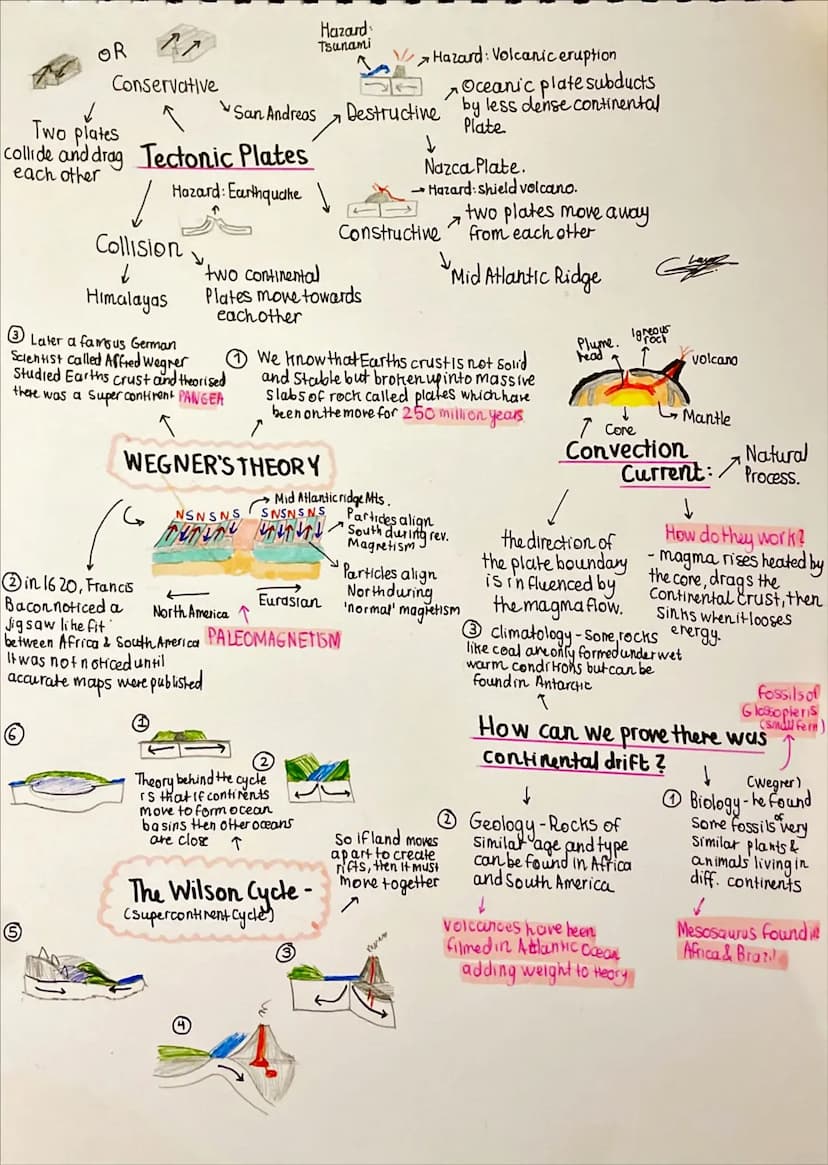 OR
Conservative
San Andreas
Two plates
collide and drag
each other
Tectonic Plates
Hazard:
Tsunami
Hazard: Volcanic eruption
Destructive
Oceanic plate subducts
by less dense continental
Plate
Nazca Plate.
Hazard: shield volcano.
Constructive
two plates move away
from each otter
Mid Atlantic Ridge
Hazard: Earthquake
Collision
Himalayas
two continental
Plates move towards
eachother
③ Later a famous German
Scientist called Alfred Wegner
Studied Earths crust and theorised
there was a Supercontinent PANGEA
① We know that Earths crust is not solid
and Stable but broken up into massive
slabs of rock called plates which have
been on the move for 250 million years
WEGNER'S THEORY
Mid Atlantic ridge Mts.
N S N S N S
S N S N S N S
Particles align
South during rev.
Magnetism
Particles align
North during
'normal' magnetism
North America
Eurasian
PALEOMAGNETISM
② in 1620, Francis
Bacon noticed a
Jigsaw like fit
between Africa & South America
It was not noticed until
accurate maps were published
Plume.
head
Igneous
rock
volcano
Mantle
Core
Convection
Current:
Natural
Process.
the direction of
the plate boundary
is influenced by
the magma flow.
How do they work?
- magma rises heated by
the core, drags the
continental crust, then
sinks when it looses
energy.
③ Climatology - Some rocks
like coal are only formed under wet
warm conditions but can be
found in Antarctic
How can we prove there was
continental drift?
Fossils of
Glossopteris
(small fern)
(Wegrer)
① Biology - he found
some fossils of very
similar plants &
animals living in
diff. continents
Mesosaurus found in
Africa & Brazil
② Geology - Rocks of
similar age and type
can be found in Africa
and South America
volcances have been
filmed in Atlantic Ocean
adding weight to theory
①
②
⑥
Theory behind the cycle
is that if continents
move to form ocean
basins then other oceans
are close
So if land moves
apart to create
rifts, then it must
move together
The Wilson Cycle -
(Supercontinent Cycle)
⑤
③
④